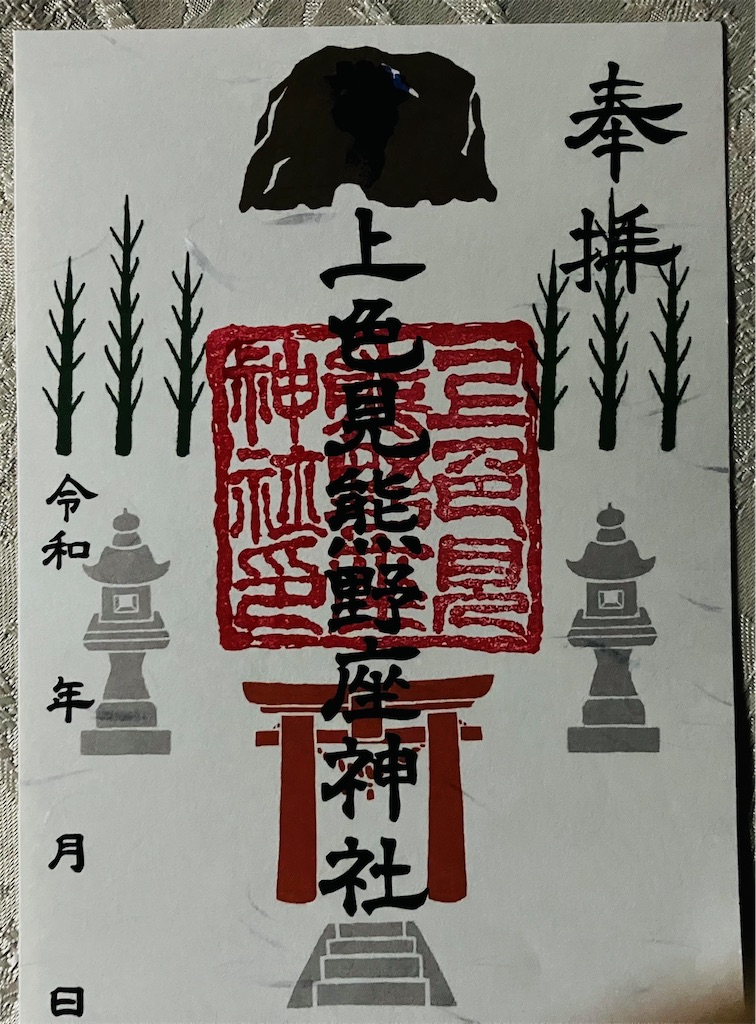 奉拝
上色見熊野座神社
上色見
熊野座
神社印
令和 年 月 日